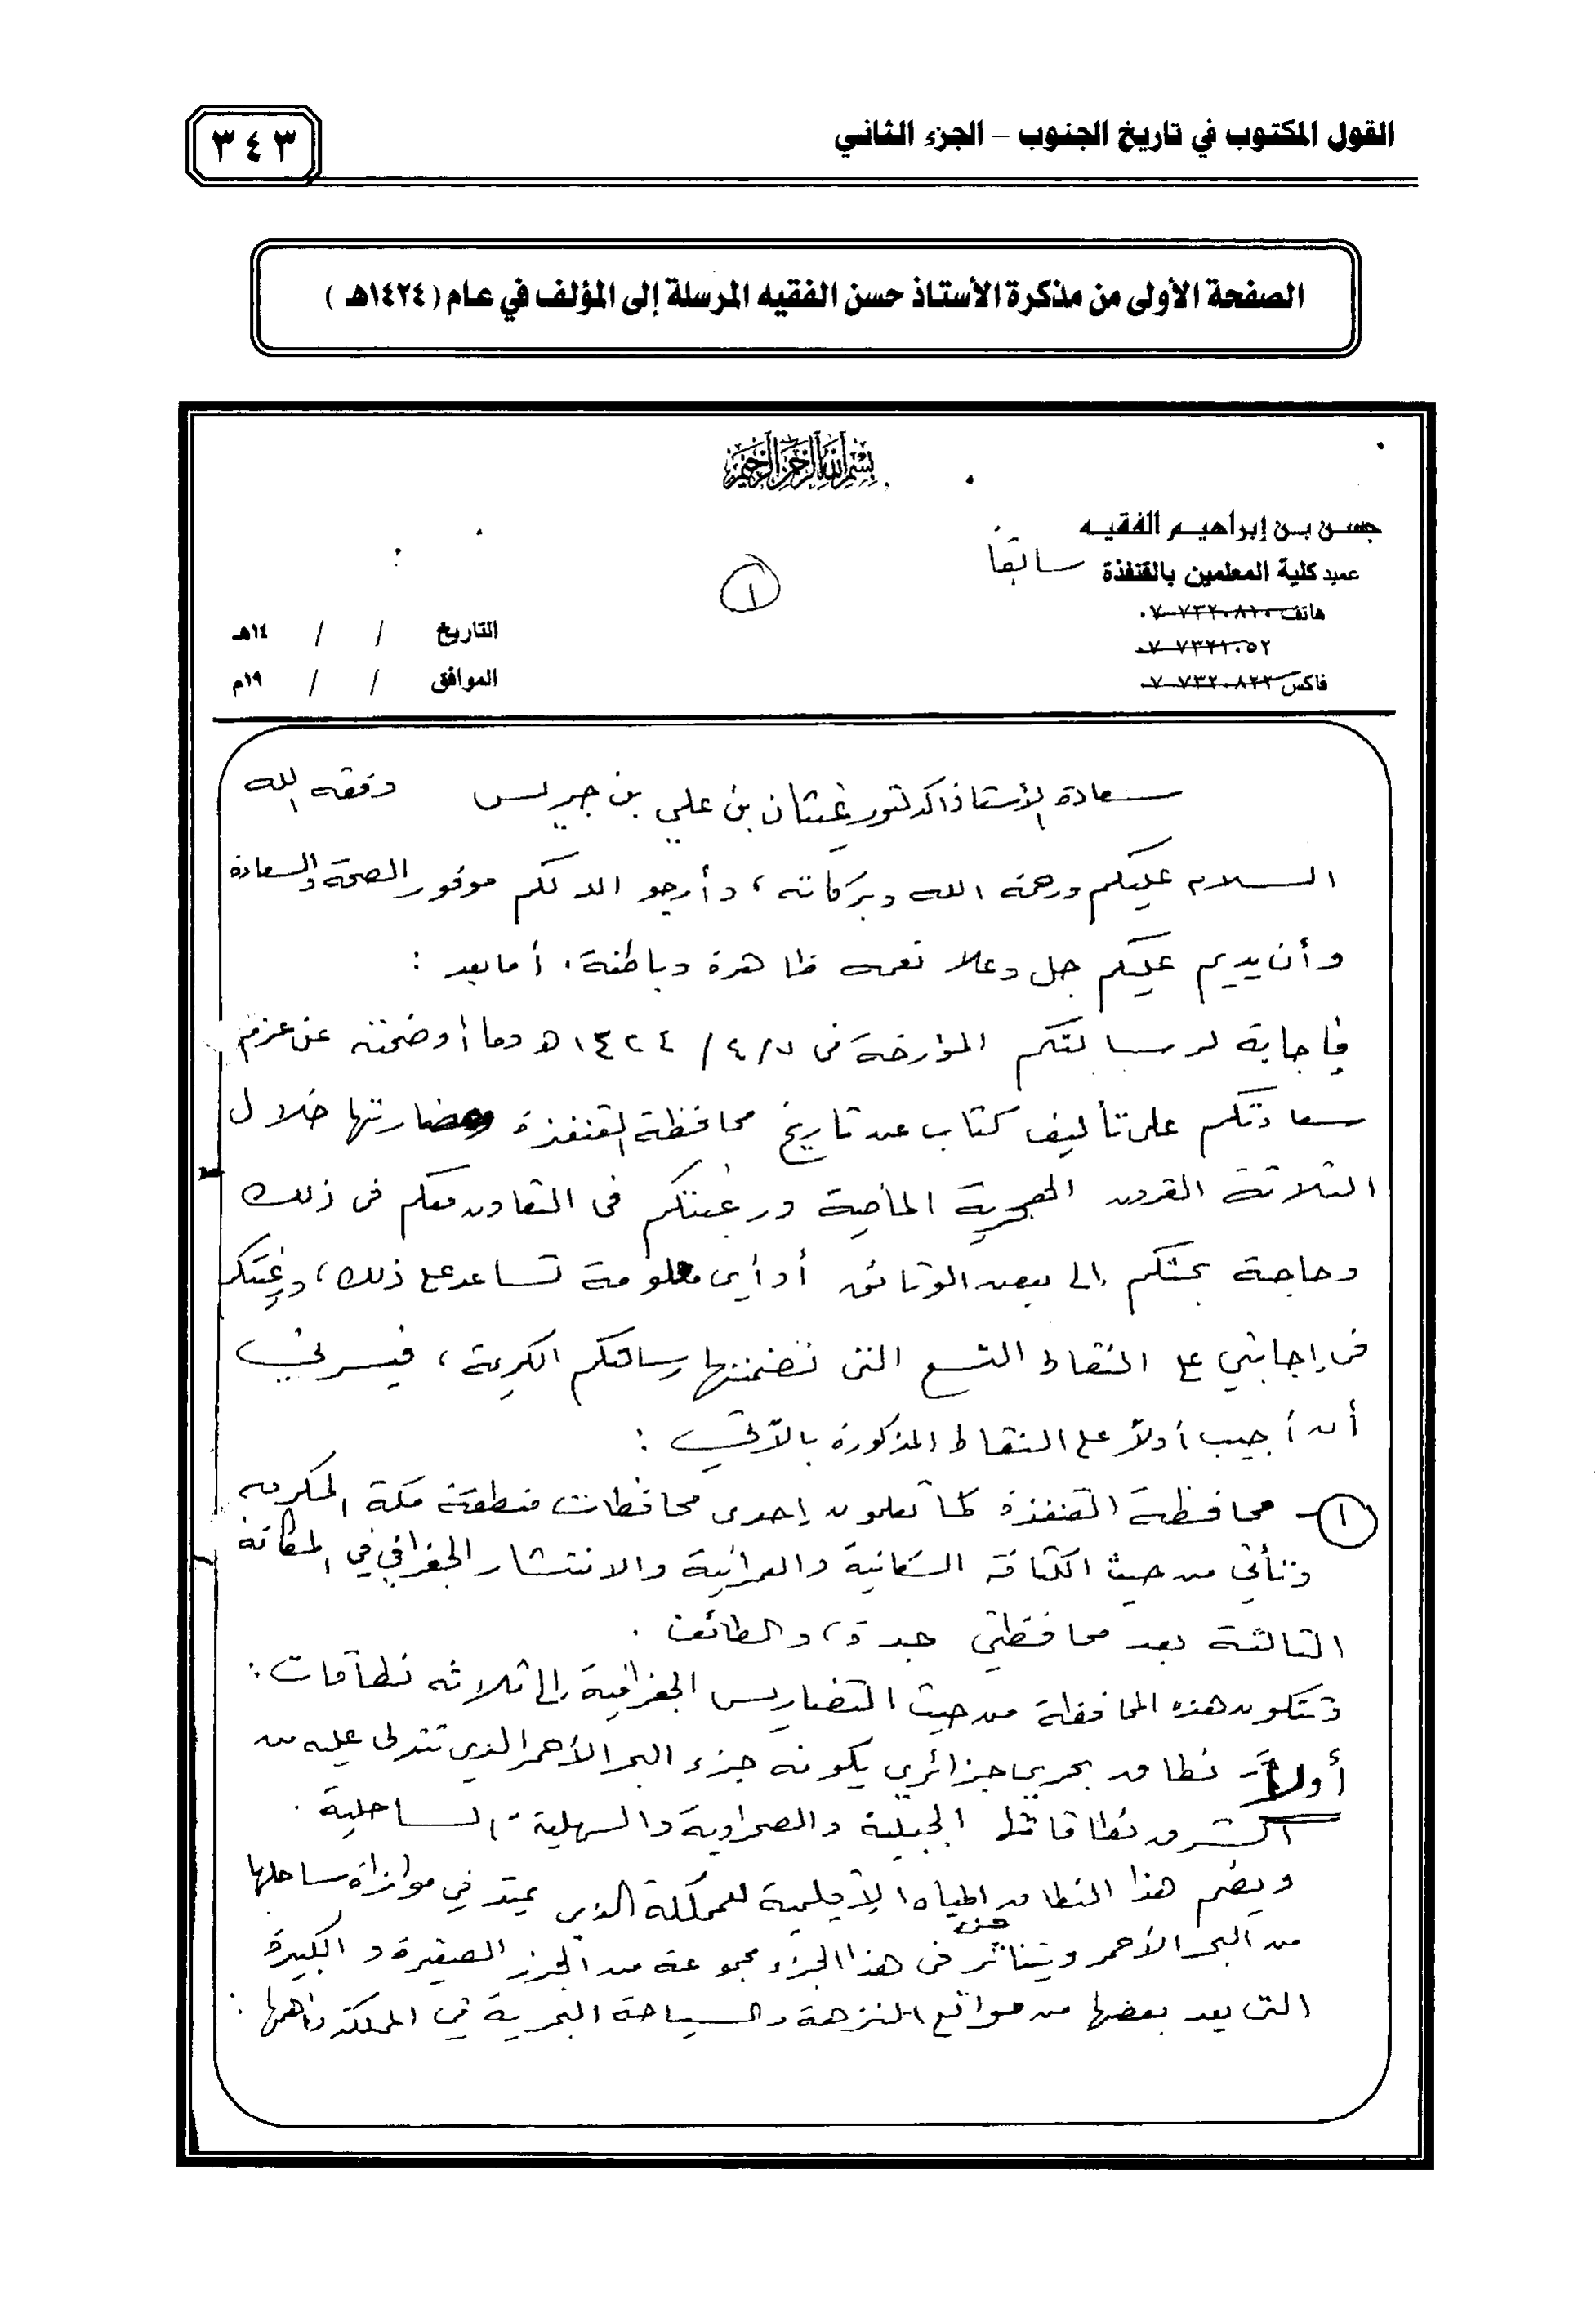 القول المكتوب في تاريخ الجنوب – الجزء الثاني
٣٤٣
الصفحة الأولى من مذكرة الأستاذ حسن الفقيه المرسلة إلى المؤلف في عام (١٤٢٤هـ)
بسم الله الرحمن الرحيم
حسن بن إبراهيم الفقيه
عميد كلية المعلمين بالقنفذة سابقاً
هاتف ٠٧٧٣٢٠٨١٠
٠٧٧٣٢١٠٥٢
فاكس ٠٧٧٣٢٠٨٢٢
١
التاريخ / / ١٤هـ
الموافق / / ١٩م
سعادة الأستاذ الدكتور غيثان بن علي بن جريس وفقه الله
السلام عليكم ورحمة الله وبركاته، وأرجو الله لكم موفور الصحة والسعادة
وأن يديم عليكم جل وعلا نعمه ظاهرة وباطنة. أما بعد :
فإجابة لرسالتكم المؤرخة في ٧/٤/١٤٢٤هـ وما أوضحته عن عزم
سعادتكم على تأليف كتاب عن تاريخ محافظة القنفذة وحضارتها خلال
الثلاثة القرون الهجرية الماضية ورغبتكم في التعاون معكم في ذلك
وحاجة بحثكم إلى بعض الوثائق أو أي معلومة تساعد على ذلك، ورغبتكم
في إجابتي على النقاط التسع التي تضمنتها رسالتكم الكريمة، فيسرني
أن أجيب أولاً على النقاط المذكورة بالآتي :
١ - محافظة القنفذة كما تعلمون إحدى محافظات منطقة مكة المكرمه
وتأتي من حيث الكثافة السكانية والعمرانية والانتشار الجغرافي في المكانة
الثالثة بعد محافظتي جدة، والطائف .
وتتكون هذه المحافظة من حيث التضاريس الجغرافية إلى ثلاثة نطاقات :
أولاً - نطاق بحري جزائري يكونه جزء البحر الأحمر الذي تتدلى عليه من
الشرق نطاقاتها الجبلية والصحراوية والسهلية - الساحلية .
ويضم هذا النطاق المياه الإقليمية للمملكة الذي يمتد في موازاة ساحلها
من البحر الأحمر ويتناثر في هذا الجزء مجموعة من الجزر الصغيرة والكبيرة
التي يعد بعضها من مواقع النزهة والسياحة البحرية في المملكة وأهمها :